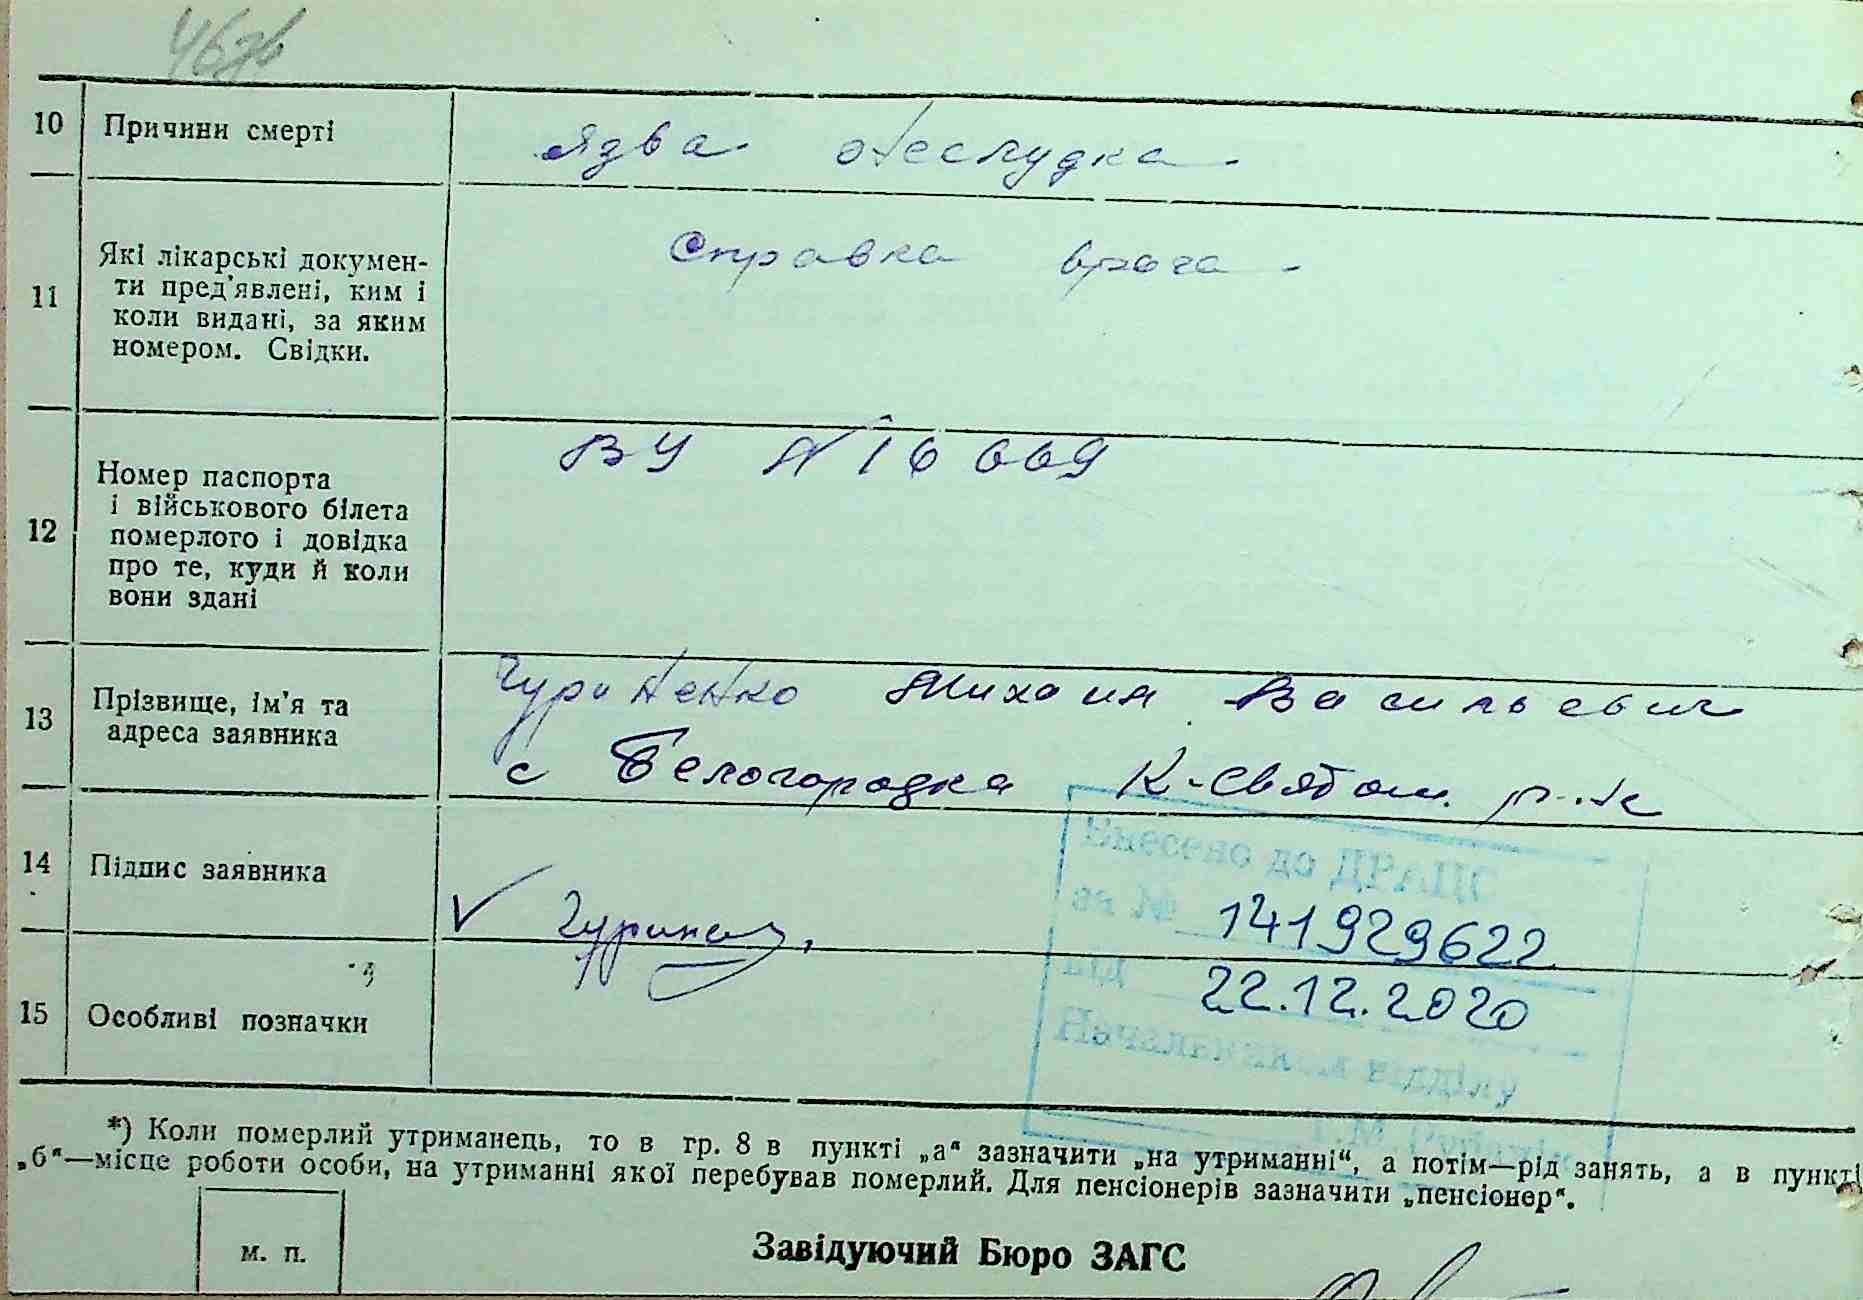 10 Причини смерті
Язва желудка.
11 Які лікарські докумен-
ти пред'явлені, ким і
коли видані, за яким
номером. Свідки.
Справка врача.
12 Номер паспорта
і військового білета
померлого і довідка
про те, куди й коли
вони здані
13 Прізвище, ім'я та
адреса заявника
Михаил Васильевич
с Белогородка К-Святош. р-на
14 Підпис заявника
15 Особливі позначки
Внесено до ДРАЦС
за № 141929622
від 22.12.2020
Начальник відділу
*) Коли померлий утриманець, то в гр. 8 в пункті „а“ зазначити „на утриманні“, а потім—рід занять, а в пункті
„б“—місце роботи особи, на утриманні якої перебував померлий. Для пенсіонерів зазначити „пенсіонер“.
м. п.
Завідуючий Бюро ЗАГС